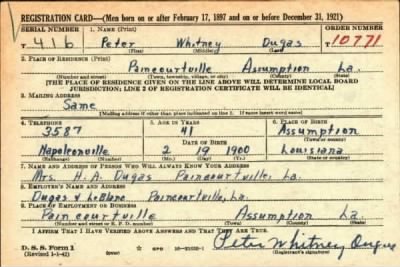 REGISTRATION CARD—(Men born on or after February 17, 1897 and on or before December 31, 1921)
SERIAL NUMBER 1. NAME (Print) ORDER NUMBER
T 416 Peter Whitney Dugas 10771
(First) (Middle) (Last)
2. PLACE OF RESIDENCE (Print)
Paincourtville Assumption La.
(Number and street) (Town, township, village, or city) (County) (State)
[THE PLACE OF RESIDENCE GIVEN ON THE LINE ABOVE WILL DETERMINE LOCAL BOARD
JURISDICTION; LINE 2 OF REGISTRATION CERTIFICATE WILL BE IDENTICAL]
3. MAILING ADDRESS
Same
[Mailing address if other than place indicated on line 2. If same insert word same]
4. TELEPHONE 5. AGE IN YEARS 6. PLACE OF BIRTH
3587 41 Assumption
DATE OF BIRTH (Town or county)
Napoleonville 2 19 1900 Louisiana
(Exchange) (Number) (Mo.) (Day) (Yr.) (State or country)
7. NAME AND ADDRESS OF PERSON WHO WILL ALWAYS KNOW YOUR ADDRESS
Mrs. H. A. Dugas Paincourtville, La.
8. EMPLOYER'S NAME AND ADDRESS
Dugas & LeBlanc Paincourtville, La.
9. PLACE OF EMPLOYMENT OR BUSINESS
Paincourtville Assumption La.
(Number and street or R. F. D. number) (Town) (County) (State)
I AFFIRM THAT I HAVE VERIFIED ABOVE ANSWERS AND THAT THEY ARE TRUE.
D. S. S. Form 1 Peter Whitney Dugas
(Revised 1-1-42) GPO (Registrant's signature)